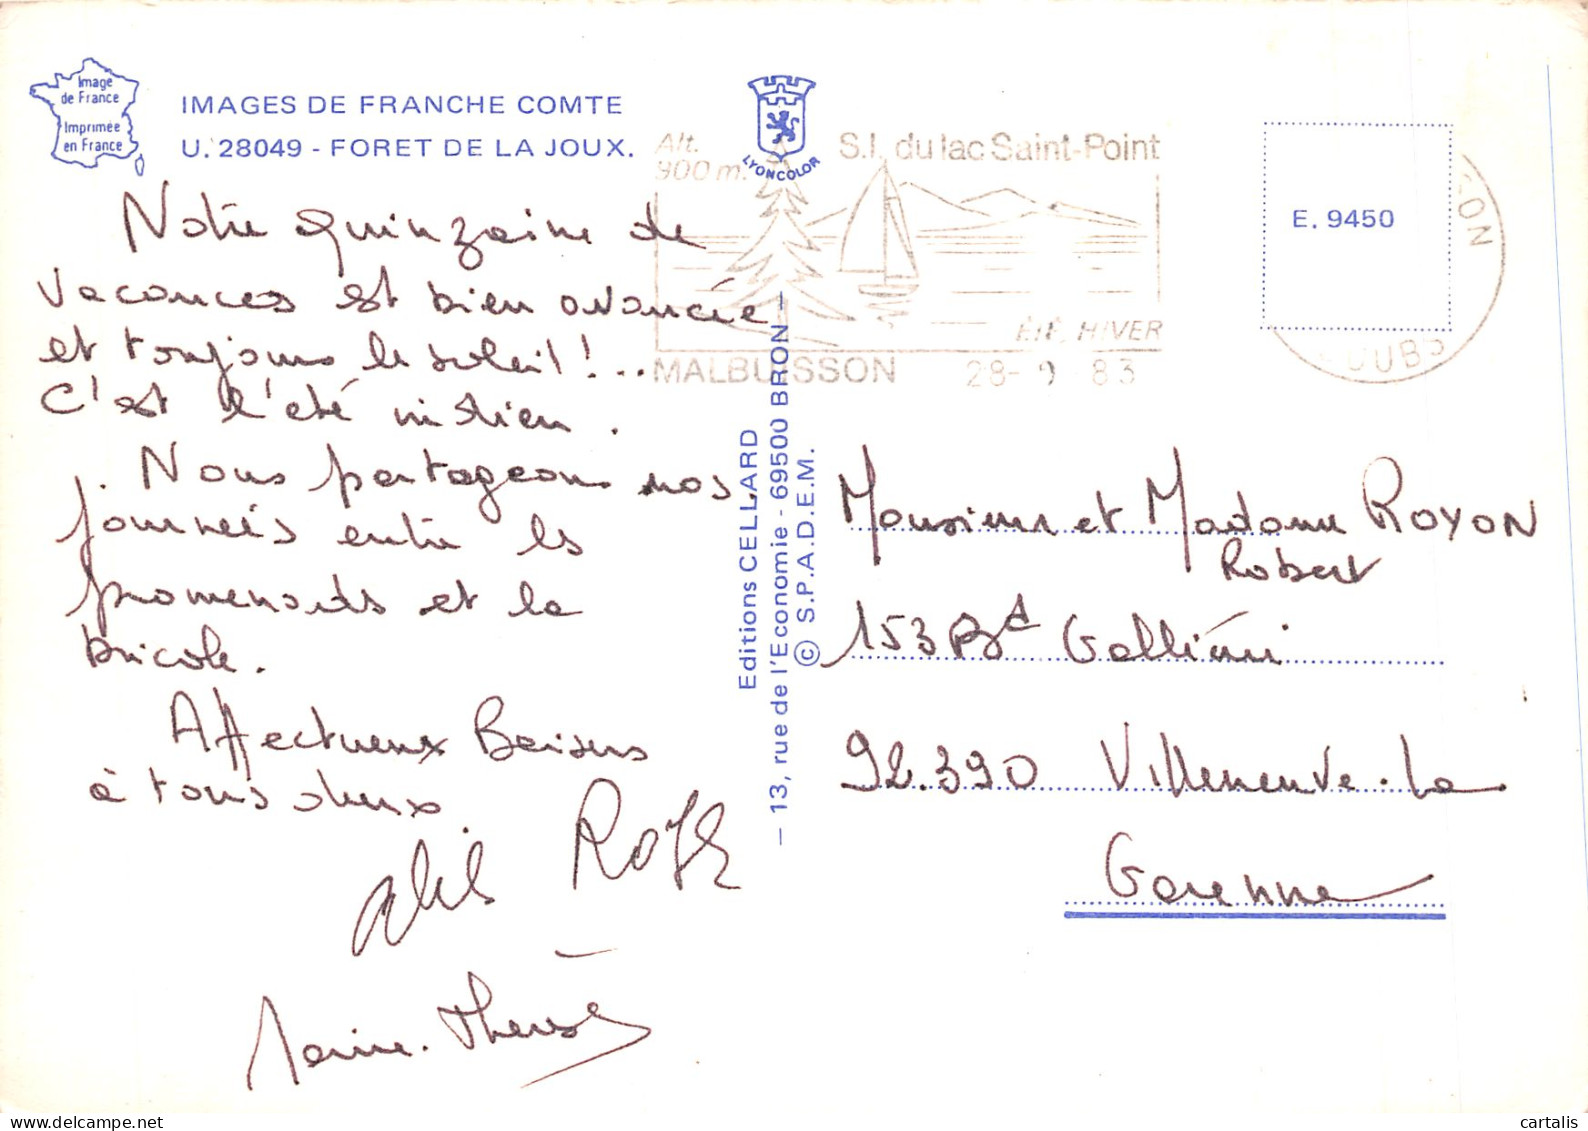 Image
de France
Imprimée
en France
IMAGES DE FRANCHE COMTE
U. 28049 - FORET DE LA JOUX.
LYONCOLOR
Alt.
900 m.
S.I. du lac Saint-Point
ÉTÉ, HIVER
MALBUISSON 28-9 83
DOUBS
E. 9450
Notre quinzaine de
vacances est bien avancée
et toujours le soleil!...
C'est l'été indien.
Nous partageons nos
journées entre les
promenades et la
bricole.
Affectueux Baisers
à tous deux
Marie-Thérèse
Editions CELLARD
— 13, rue de l'Economie - 69500 BRON —
© S.P.A.D.E.M.
Monsieur et Madame ROYON
Robert
153 Bd Galliéni
92.390 Villeneuve-la
Garenne
cartalis